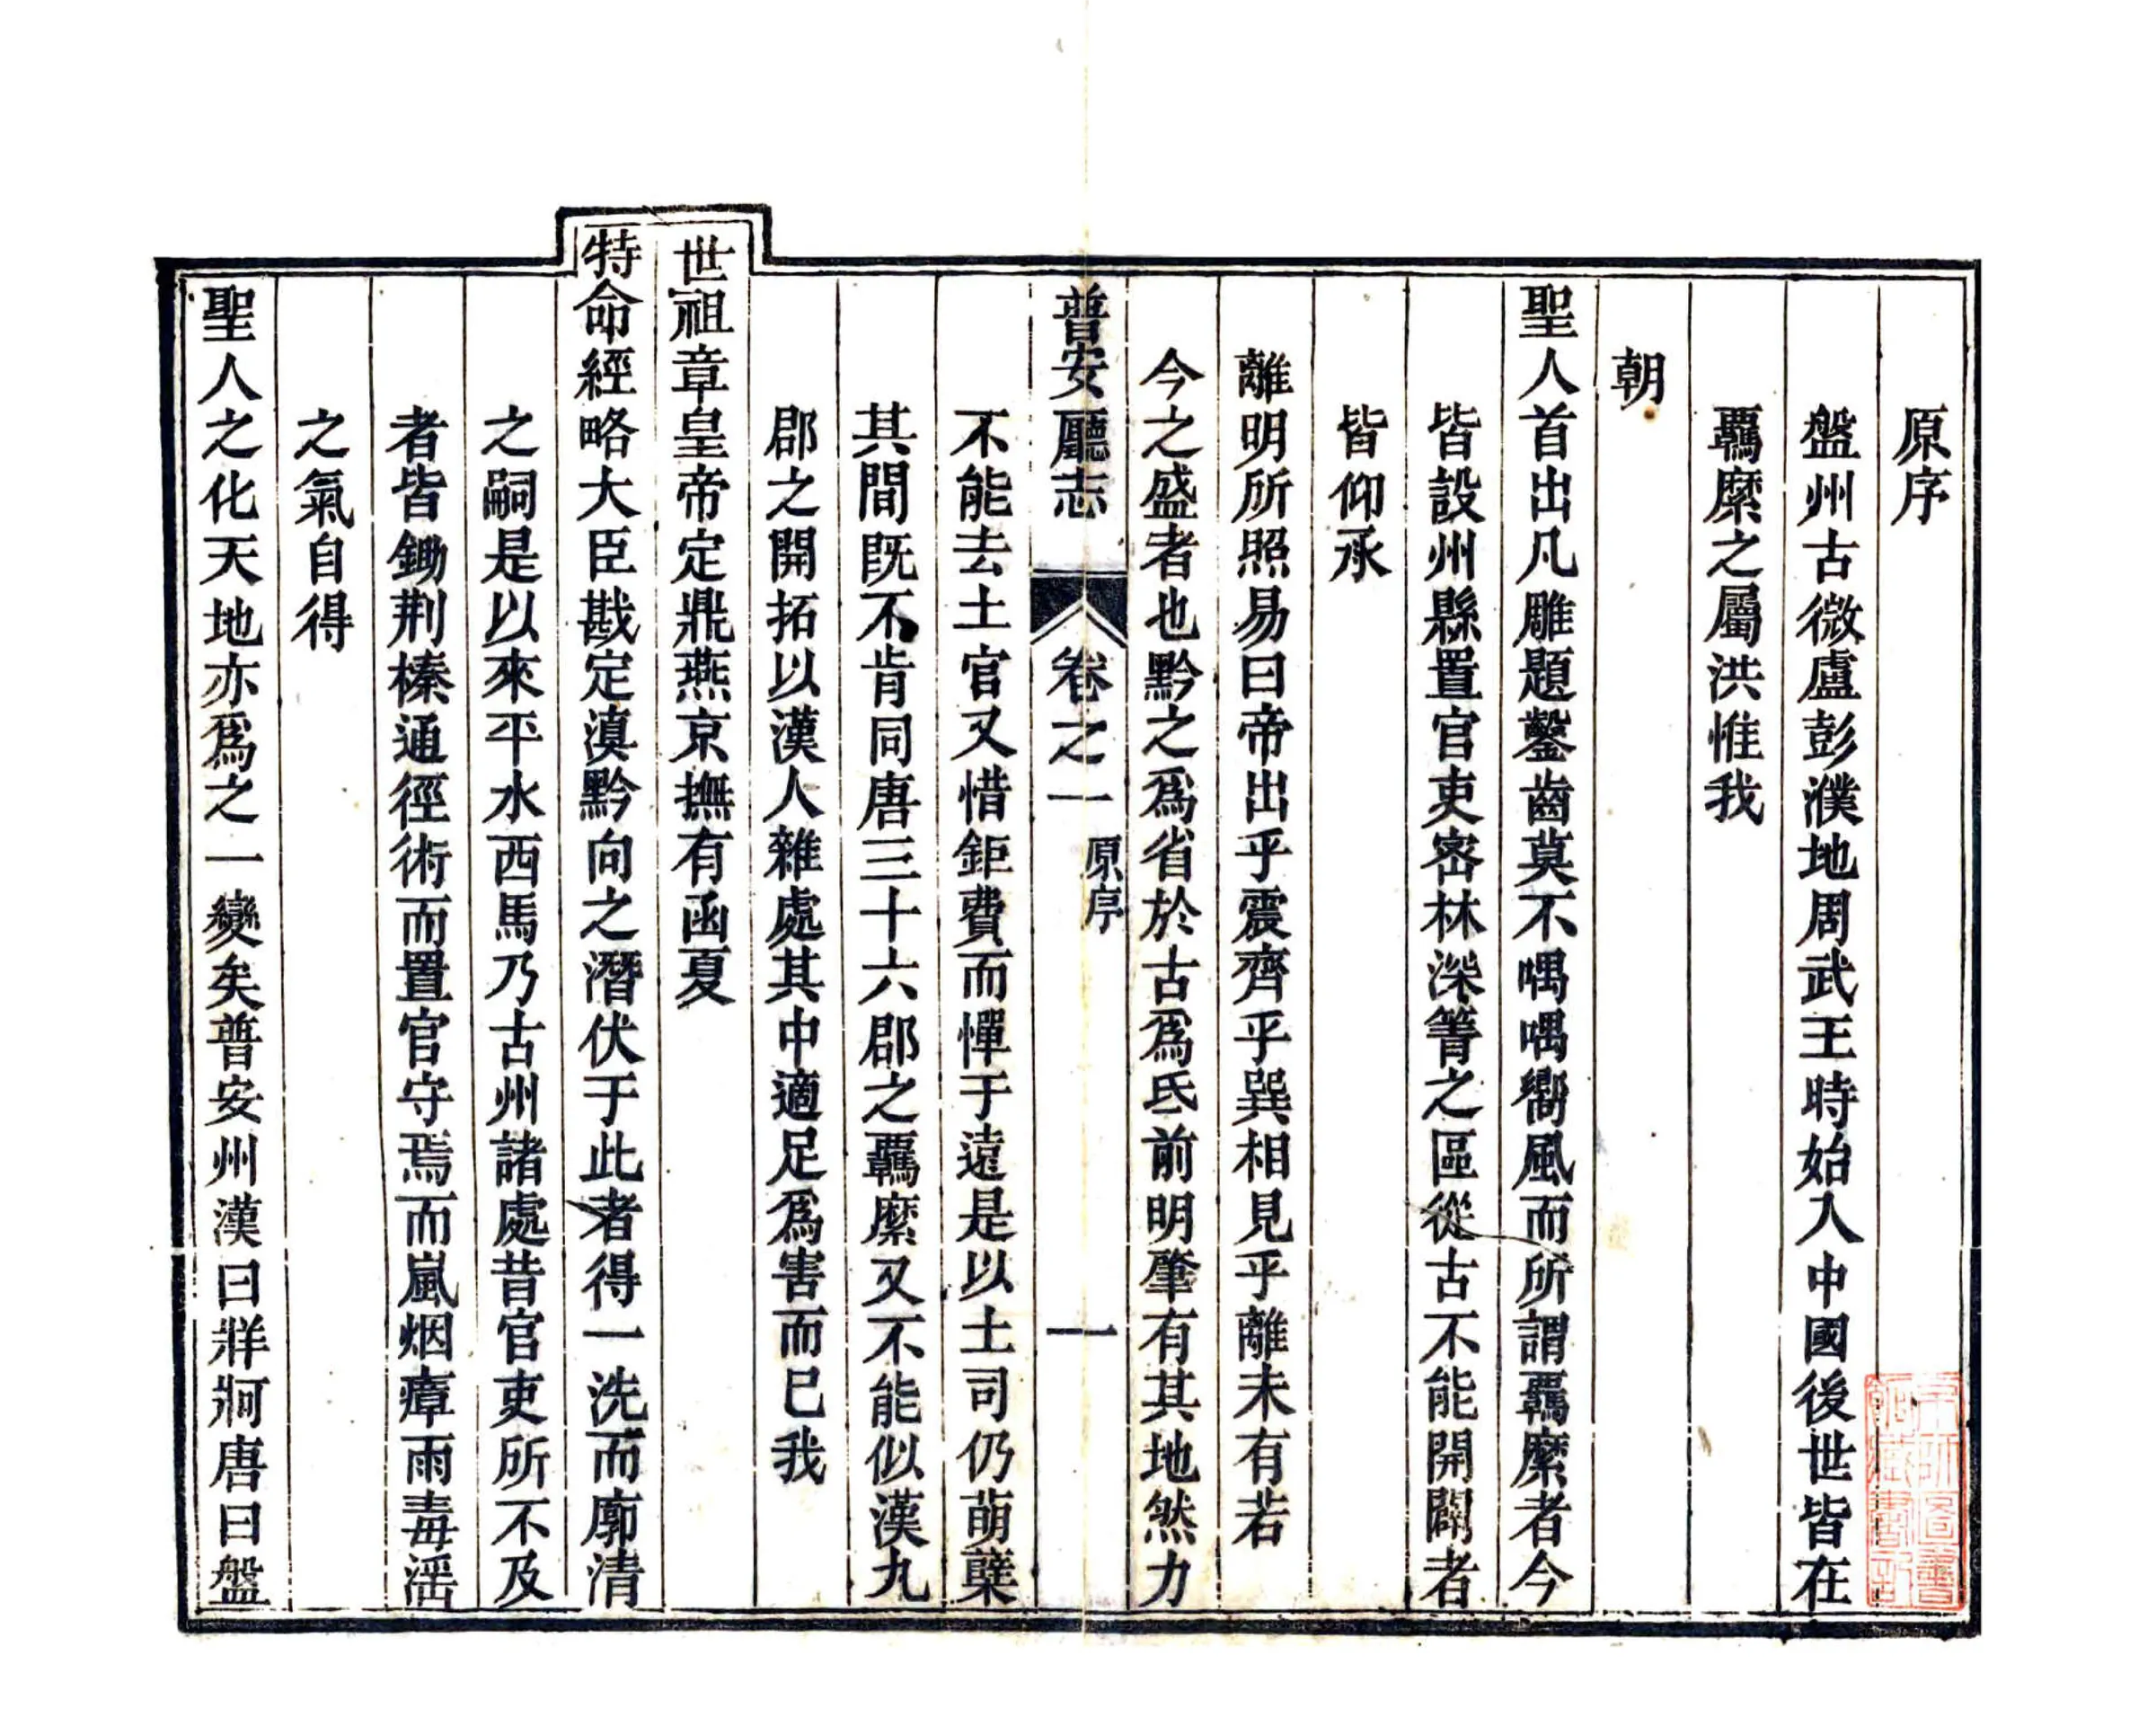 原序
盤州古微盧彭濮地周武王時始入中國後世皆在
羈縻之屬洪惟我
朝
聖人首出凡雕題鑿齒莫不喁喁嚮風而所謂羈縻者今
皆設州縣置官吏密林深箐之區從古不能開闢者
皆仰承
離明所照易曰帝出乎震齊乎巽相見乎離未有若
今之盛者也黔之爲省於古爲氐前明肇有其地然力
普安廳志 卷之一 原序 一
不能去土官又惜鉅費而憚于遠是以土司仍萌櫱
其間旣不肯同唐三十六郡之羈縻又不能似漢九
郡之開拓以漢人雜處其中適足爲害而已我
世祖章皇帝定鼎燕京撫有函夏
特命經略大臣戡定滇黔向之潛伏于此者得一洗而廓清
之嗣是以來平水西馬乃古州諸處昔官吏所不及
者皆鋤荆榛通徑術而置官守焉而嵐烟瘴雨毒滛
之氣自得
聖人之化天地亦爲之一變矣普安州漢曰牂牁唐曰盤